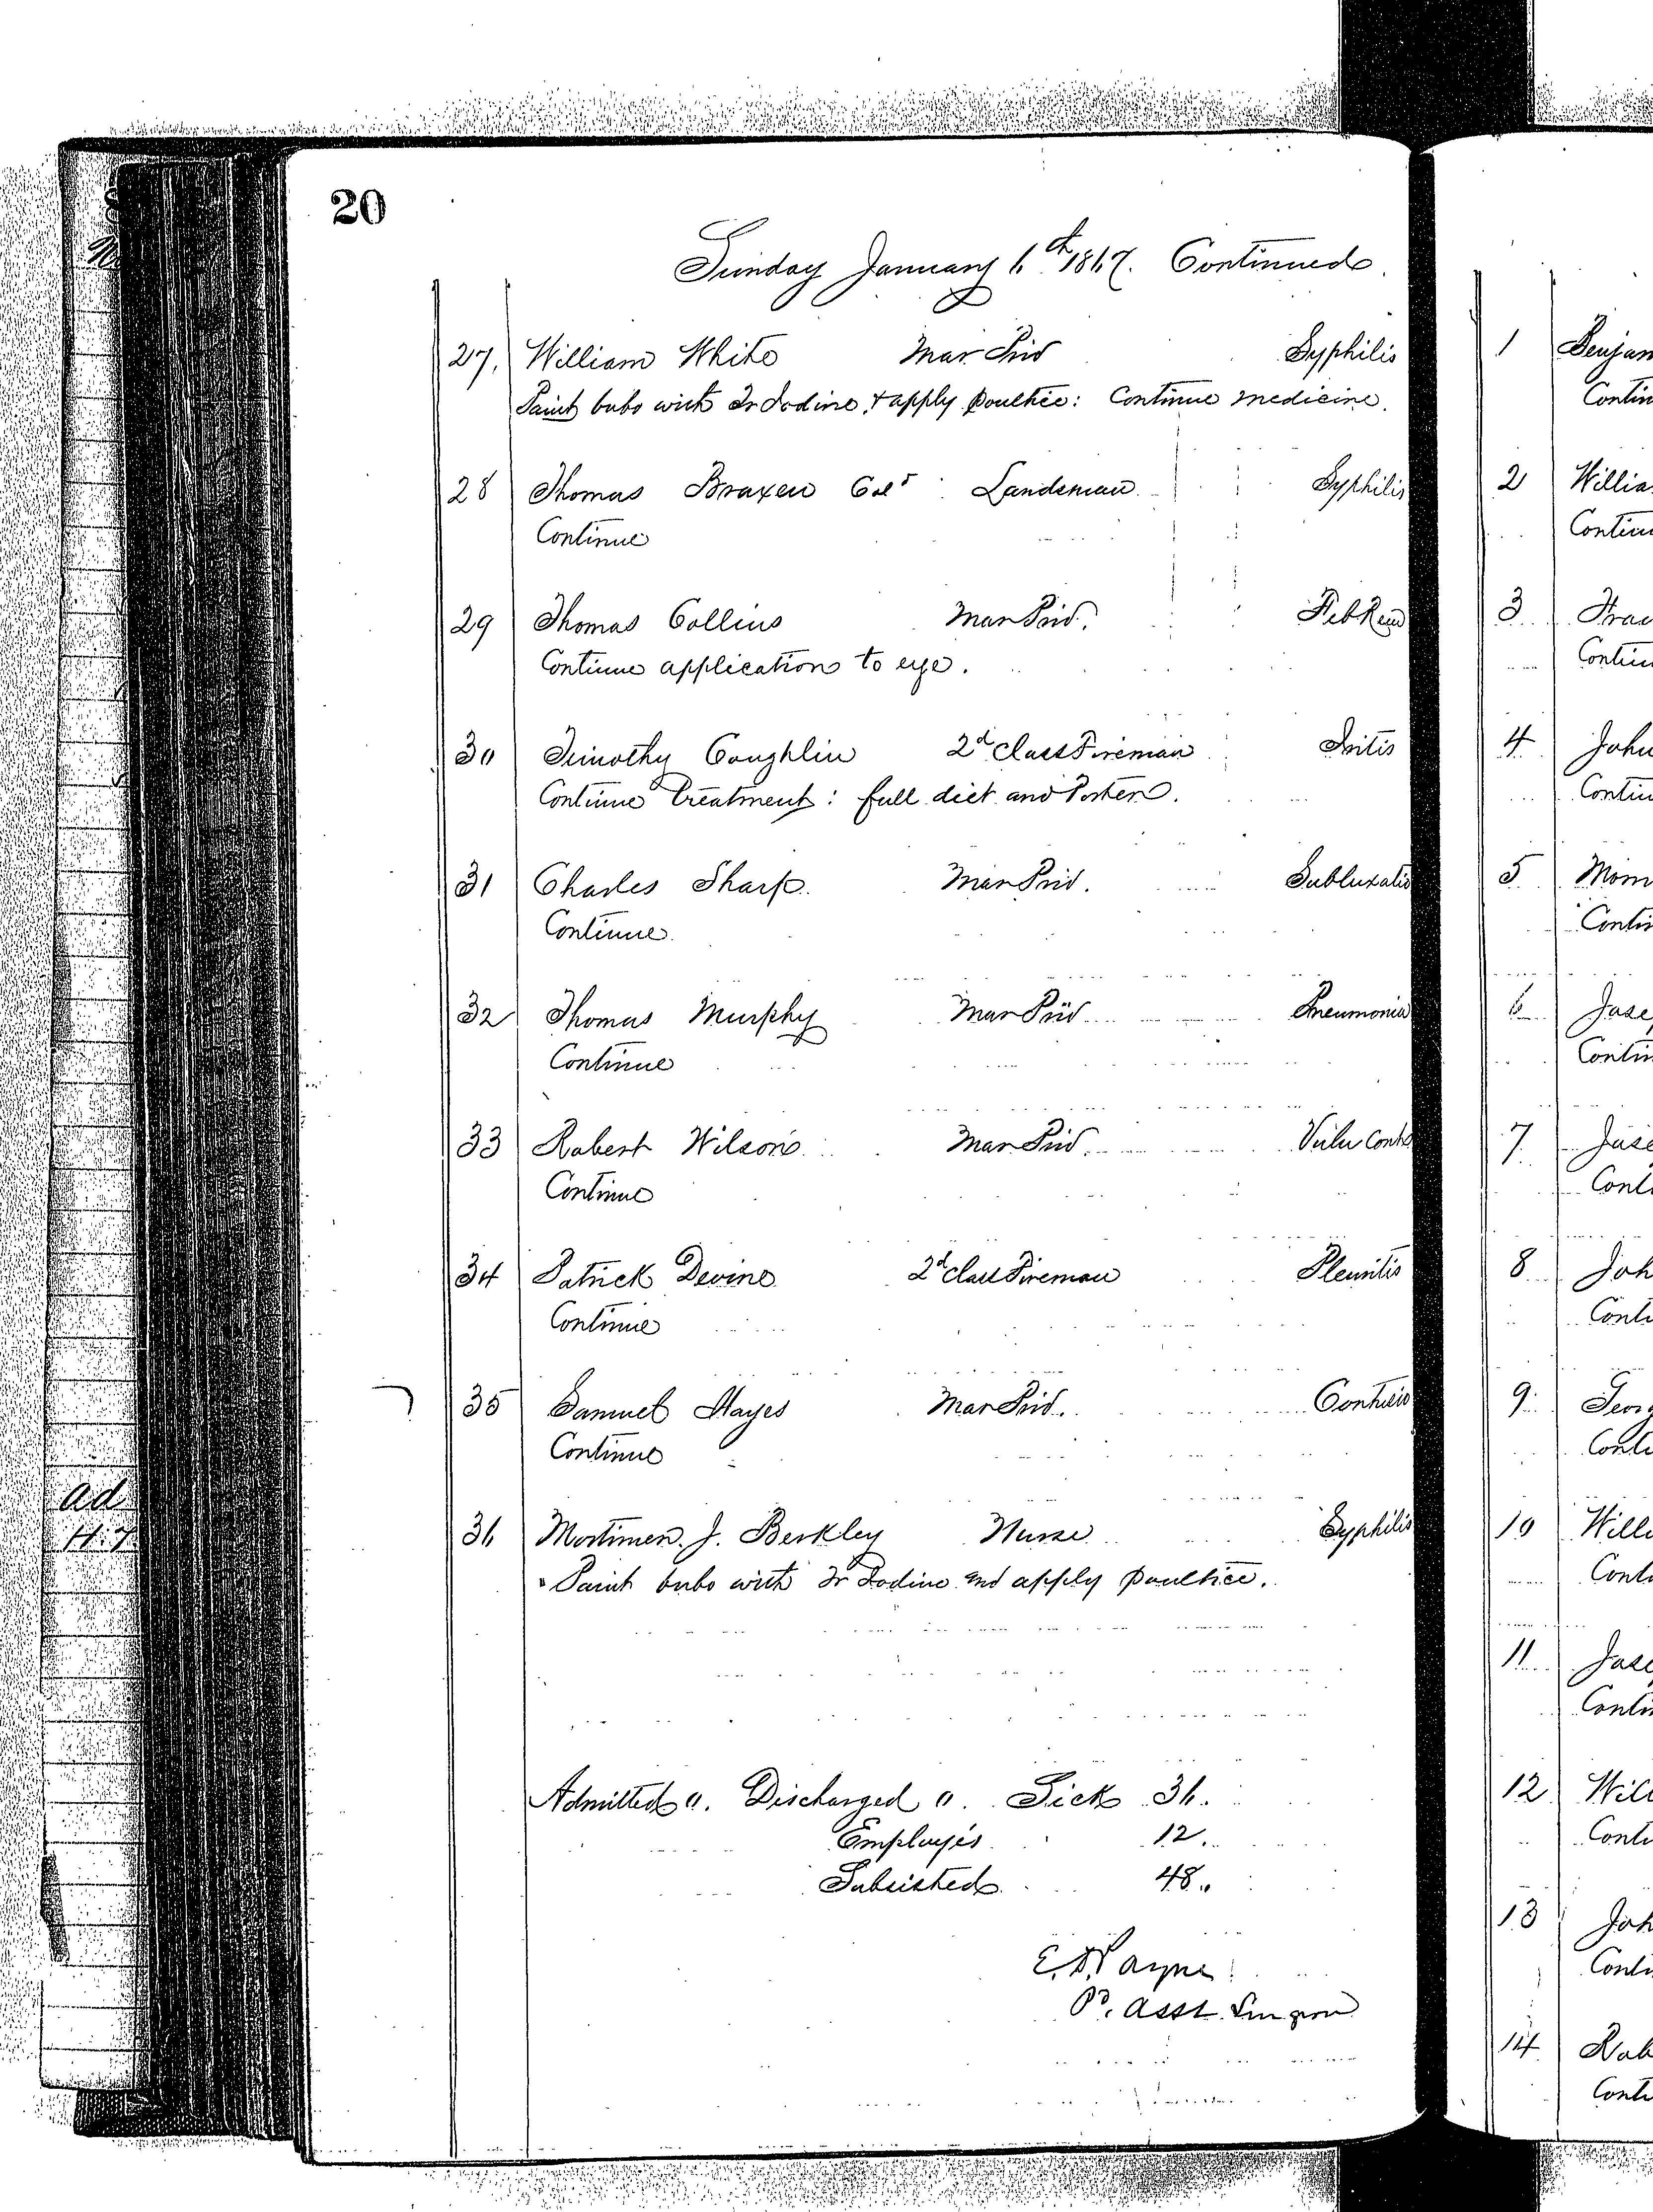 20
Sunday January 6th 1867. Continued.
27. William White Mar Priv Syphilis
Paint bubo with Tr Iodine, & apply poultice: Continue medicine.
28 Thomas Braxen Cold Landsman Syphilis
Continue
29 Thomas Collins Mar Priv. Feb Rem
Continue application to eye.
30 Timothy Coughlin 2d Class Fireman Iritis
Continue treatment: full diet and Porter.
31 Charles Sharp. Mar Priv. Subluxatio
Continue.
32 Thomas Murphy Mar Priv Pneumonia
Continue
33 Robert Wilson Mar Priv. Vuln Cont
Continue
34 Patrick Devine 2d Class Fireman Pleuritis
Continue
35 Samuel Hayes Mar Priv. Contusio
Continue
36 Mortimer. J. Berkley Nurse Syphilis
Paint bubo with Tr Iodine and apply poultice.
Admitted 0. Discharged 0. Sick 36.
Employés 12.
Subsisted 48.
E. Payne
Pd. Asst. Surgeon
ad
1 Benjam
Contin
2 Willia
Continu
3 Fran
Continu
4 John
Continu
5 Mom
Contin
6 Jase
Contin
7 Jase
Conti
8 Joh
Conti
9. Georg
Conti
10 Willi
Conti
11 Jase
Contin
12 Will
Conti
13 Joh
Conti
14 Rob
Conti